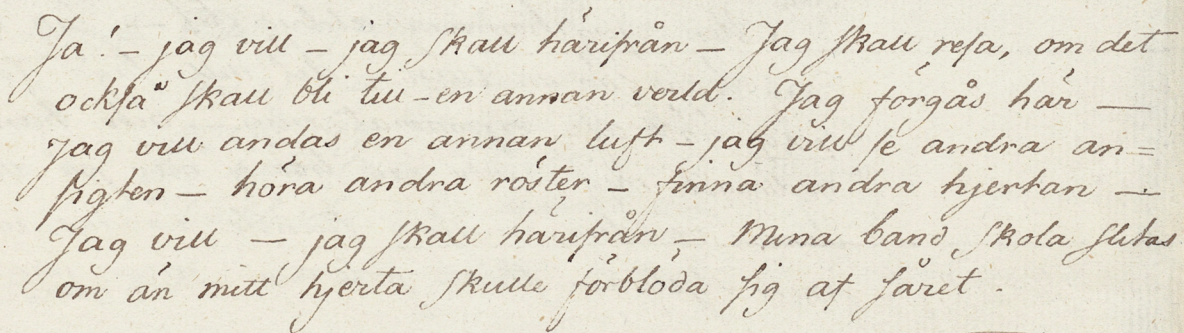 Ja! – jag vill – jag skall härifrån – Jag skall resa, om det
också skall bli till – en annan verld. Jag förgås här —
Jag vill andas en annan luft – jag vill se andra an=
sigten – höra andra röster – finna andra hjertan —
Jag vill — jag skall härifrån – Mina band skola slitas
om än mitt hjerta skulle förblöda sig af såret.